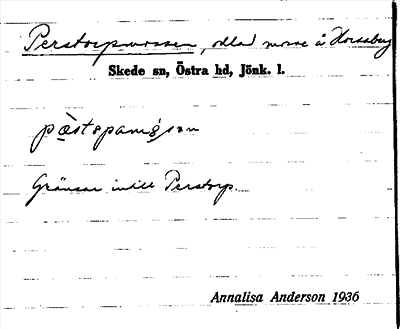 Perstorpmossen, odlad mosse å Horssberg
Skede sn, Östra hd, Jönk. l.
Gränsar intill Perstorp.
Annalisa Anderson 1936